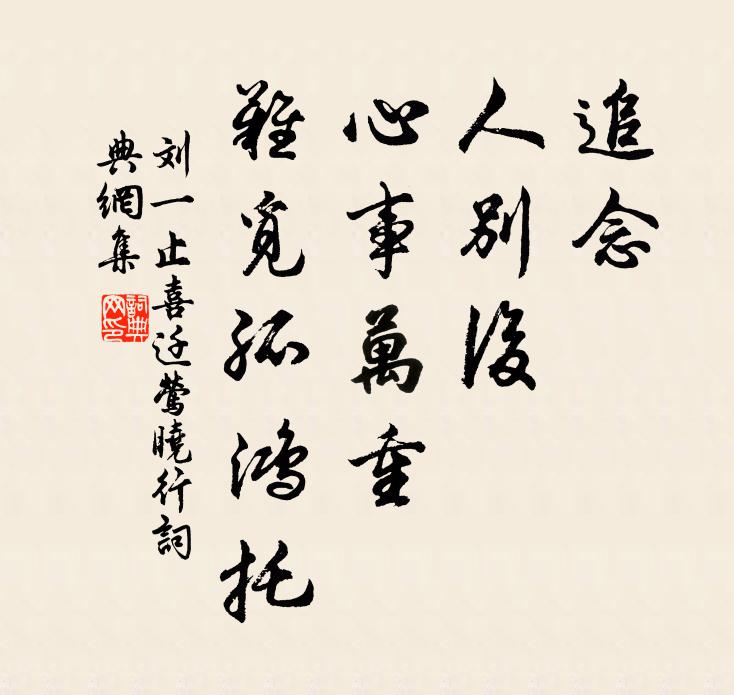 追念
人别後
心事萬重
難覓孤鴻托
刘一止喜迁鶯曉行詞
典網集
詞典網印